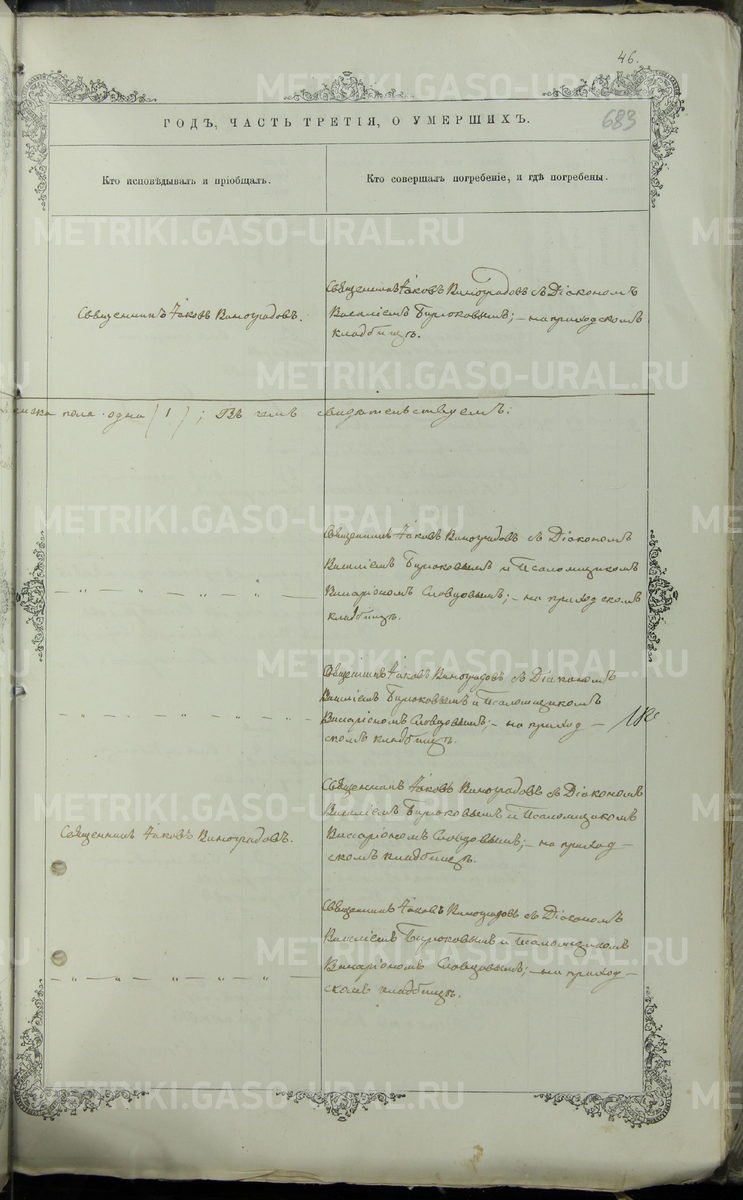 46.
683
ГОДЪ, ЧАСТЬ ТРЕТІЯ, О УМЕРШИХЪ.
Кто исповѣдывалъ и пріобщалъ.
Кто совершалъ погребеніе, и гдѣ погребены.
Священникъ Іаковъ Виноградовъ.
Священникъ Іаковъ Виноградовъ съ Діакономъ
Василіемъ Бирюковымъ; – на приходскомъ
кладбищѣ.
пола одна (1); Въ чемъ свидѣтельствуемъ:
Священникъ Іаковъ Виноградовъ съ Діакономъ
Василіемъ Бирюковымъ и Псаломщикомъ
Виссаріономъ Словцовымъ; – на приходскомъ
кладбищѣ.
– „ – „ – „ – „ –
Священникъ Іаковъ Виноградовъ съ Діакономъ
Василіемъ Бирюковымъ и Псаломщикомъ
Виссаріономъ Словцовымъ; – на приход–
скомъ кладбищѣ.
– „ – „ – „ – „ –
Священникъ Іаковъ Виноградовъ.
Священникъ Іаковъ Виноградовъ съ Діакономъ
Василіемъ Бирюковымъ и Псаломщикомъ
Виссаріономъ Словцовымъ; – на приход–
скомъ кладбищѣ.
– „ – „ – „ – „ –
Священникъ Іаковъ Виноградовъ съ Діакономъ
Василіемъ Бирюковымъ и Псаломщикомъ
Виссаріономъ Словцовымъ; – на приход–
скомъ кладбищѣ.
METRIKI.GASO-URAL.RU